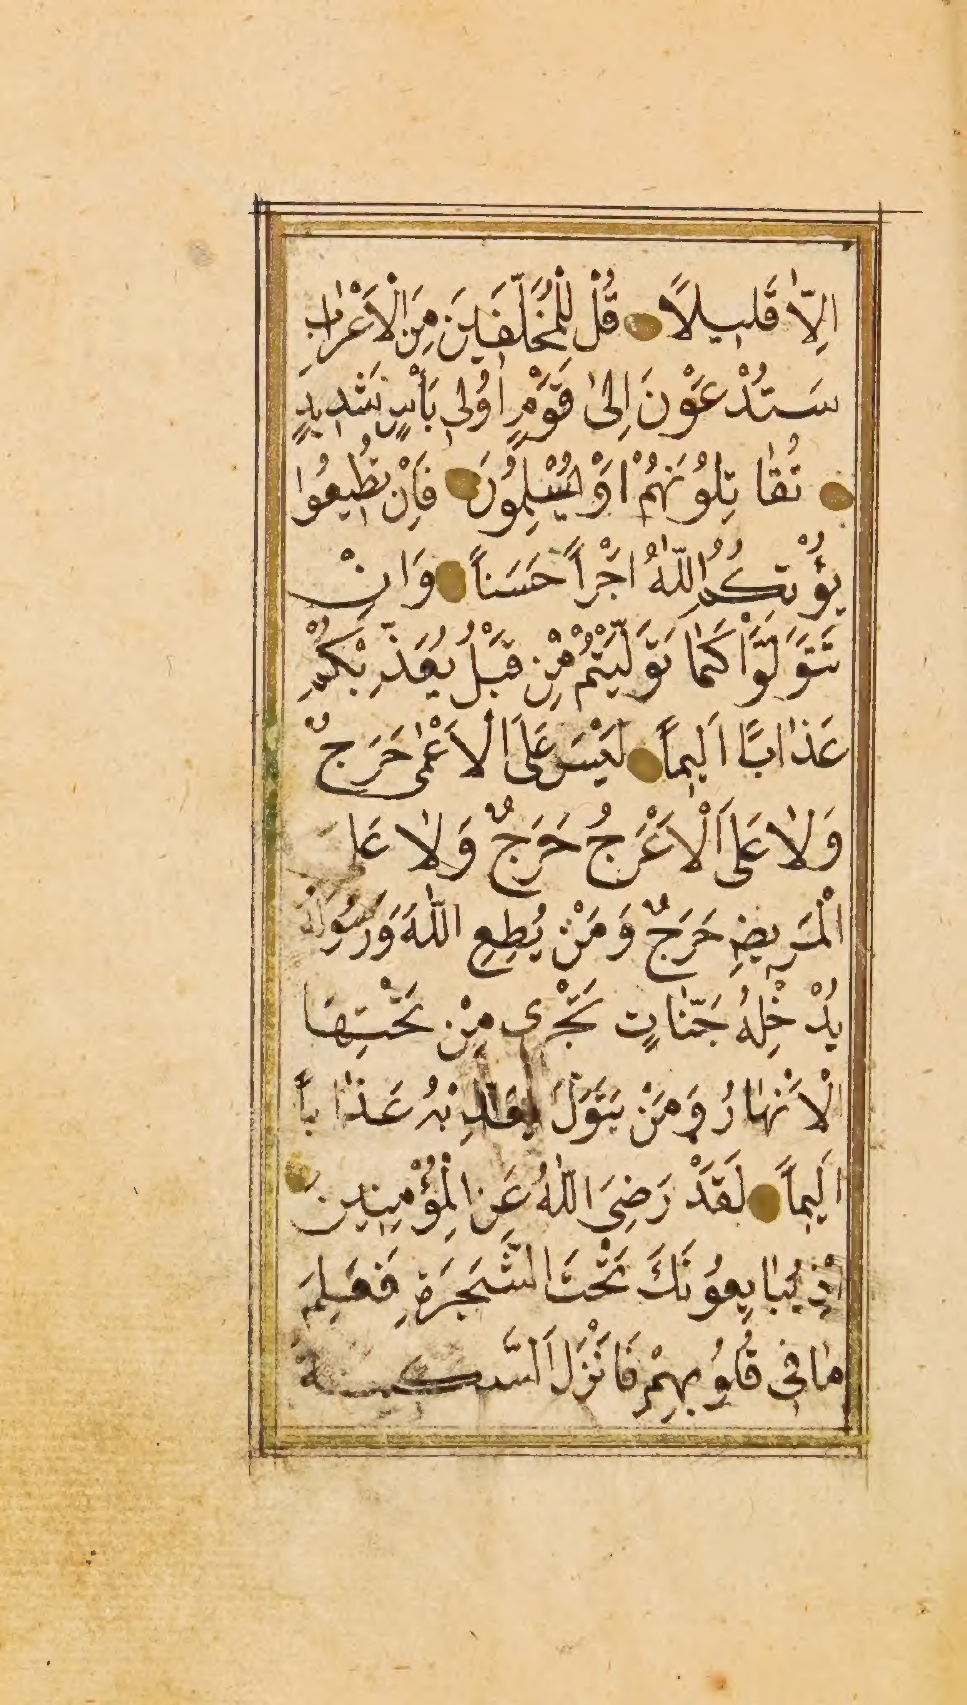 اِلَّا قَلٖيلًا قُلْ لِلْمُخَلَّفٖينَ مِنَ الْاَعْرَابِ
سَتُدْعَوْنَ اِلىٰ قَوْمٍ اُولٖى بَاْسٍ شَدٖيدٍ
تُقَاتِلُونَهُمْ اَوْ يُسْلِمُونَ فَاِنْ تُطٖيعُوا
يُؤْتِكُمُ اللّٰهُ اَجْراً حَسَناً وَاِنْ
تَتَوَلَّوْا كَمَا تَوَلَّيْتُمْ مِنْ قَبْلُ يُعَذِّبْكُمْ
عَذَابًا اَلٖيماً لَيْسَ عَلَى الْاَعْمٰى حَرَجٌ
وَلَا عَلَى الْاَعْرَجِ حَرَجٌ وَلَا عَلَى
الْمَرٖيضِ حَرَجٌ وَمَنْ يُطِعِ اللّٰهَ وَرَسُولَهُ
يُدْخِلْهُ جَنَّاتٍ تَجْرٖى مِنْ تَحْتِهَا
الْاَنْهَارُ وَمَنْ يَتَوَلَّ يُعَذِّبْهُ عَذَاباً
اَلٖيماً لَقَدْ رَضِىَ اللّٰهُ عَنِ الْمُؤْمِنٖينَ
اِذْ يُبَايِعُونَكَ تَحْتَ الشَّجَرَةِ فَعَلِمَ
مَا فٖى قُلُوبِهِمْ فَاَنْزَلَ السَّكٖينَةَ